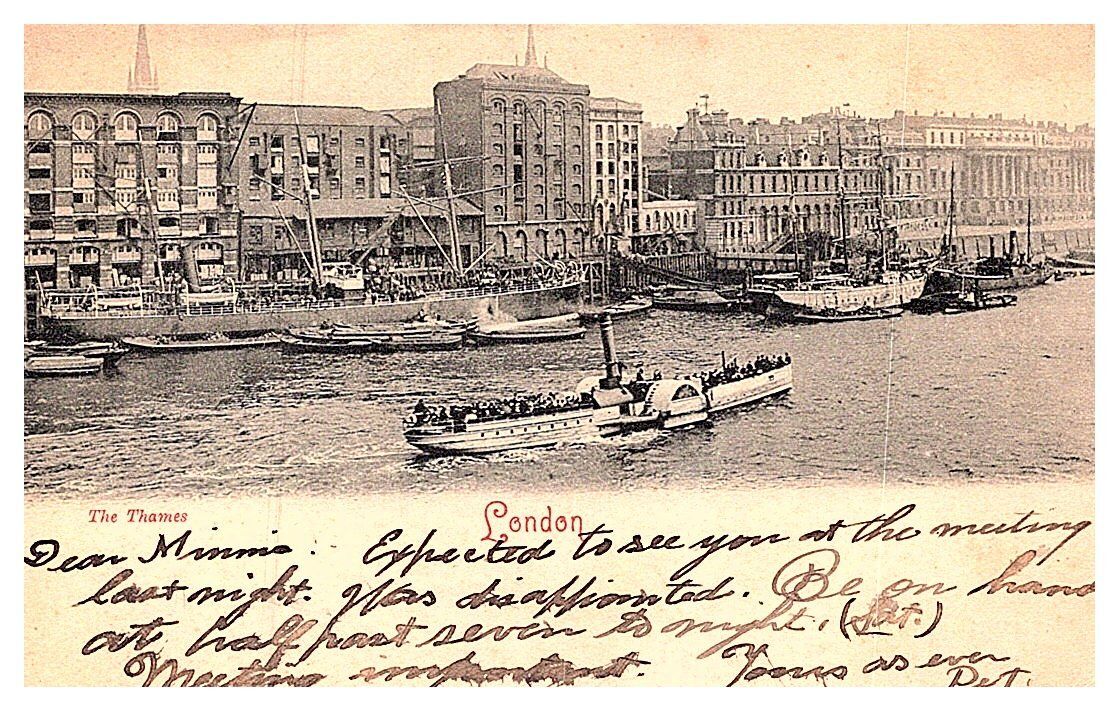 The Thames
London
Dear Minnie. Expected to see you at the meeting
last night. Was disappointed. Be on hand
at half past seven to night, (Sat.)
Meeting important. Yours as ever
Pet.